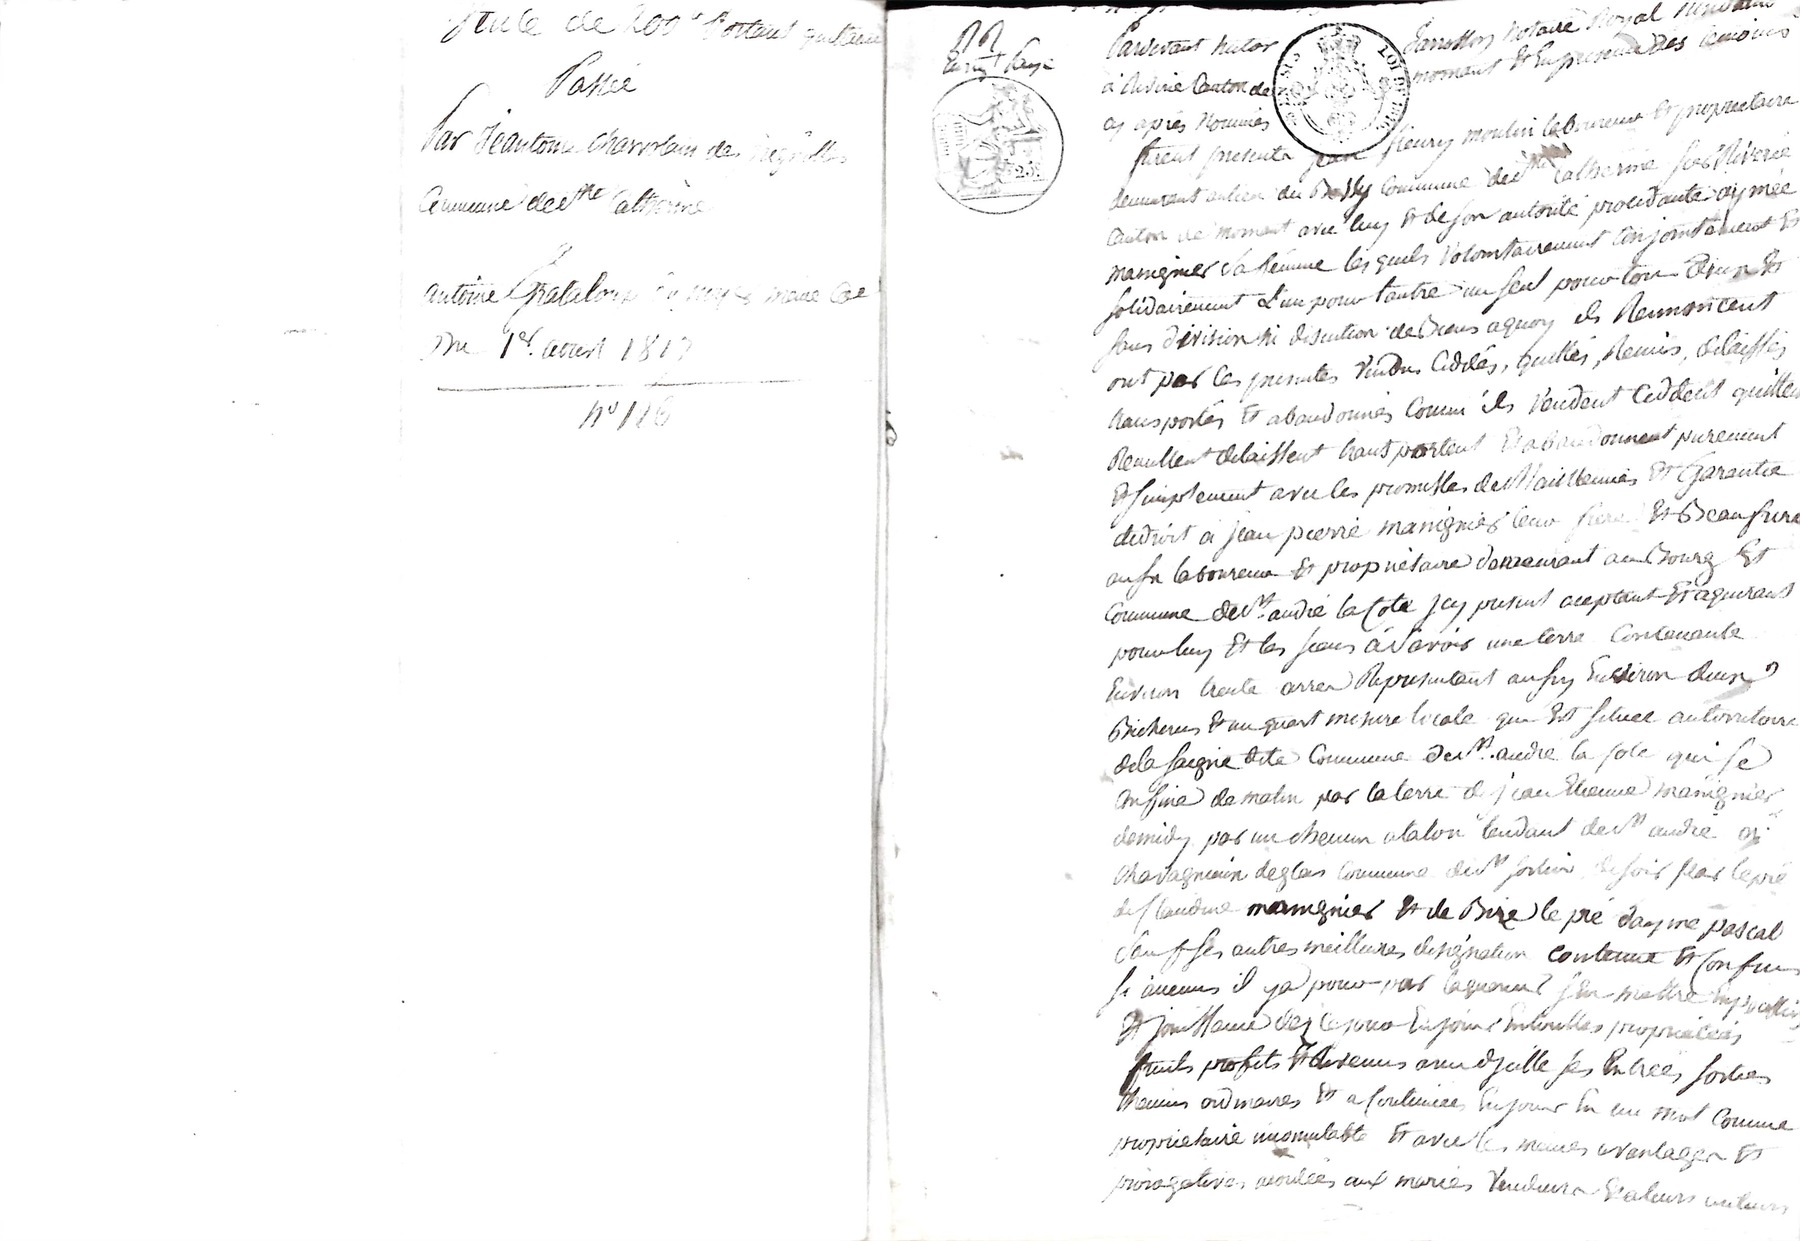 de 200 portant quittance
Passée
Par Jeantoine Charvolain des
Commune de Ste Catherine
A
antoine Grataloup
Du 1er avril 1817
n° 116
Pardevant hector Janosson Notaire Royal Résidant
à Riverie Canton de mornant Et En presence des temoins
cy après Nommés
furent presents jean fleury moulin laboureur Et proprietaire
demeurant au lieu du Commune de Ste Catherine sur Riverie
Canton de mornant avec luy Et de son autorité procédante aymée
manignier sa femme lesquels Volontairement Conjointement Et
solidairement L'un pour l'autre un seul pour Le tout
sans division ni discution de Biens a quoy ils Renoncent
ont par les presentes Vendus Céddés, quittés, Remis, délaissés
transportés Et abandonnés Comm'ils Vendent Cèddent quittent
Remettent délaissent transportent Et abandonnent purement
Et simplement avec les promesses de Maintenue Et Garantie
de droit à jean pierre manignier leur frere Et Beaufrere
aussy laboureur Et propriétaire demeurant au Bourg Et
Commune de St. andré la Cote jcy present aceptant Et aquerant
pour luy Et les siens à sàvoir une terre Contenante
Environ trente arres Representant aussy Environ deux
Bicherees Et un quart mesure locale qui Est située au territoire
de la saigne dite Commune de St. andré la Cote qui se
Confine de matin par la terre de jean Etienne manignier,
de midy par un chemin tendant de St andré a
Commune de St sorlin de soir par le pré
de Claudine manignier Et de Bize le pré d'ayme pascal
sauf ses autres meilleures désignation contenue Et Confins
si aucuns il y a pour par l'aquereur s'en mettre En possession
Et jouissance dez ce jour En jouir En toutes propriétés
fruits profits Et Revenus avec d'jcelle ses Entrées, sorties
chemins ordinaires Et acoutumées En jouir En un mot Comme
propriétaire incomutable Et avec les mêmes avantages Et
prérogatives acordées aux mariés Vendeurs Et a leurs auteurs